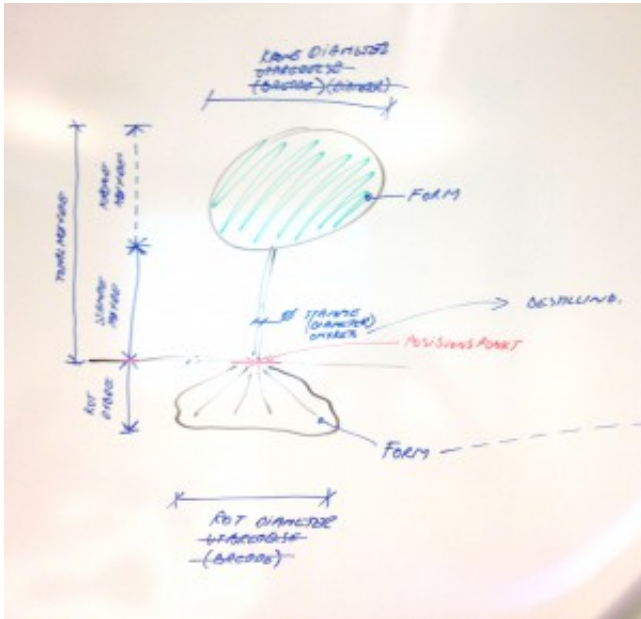 KRONE DIAMETER
UTBREDELSE
(BREDDE) (DIAMETER)
TOTALHØYDE
KRONE
HØYDE
FORM
STAMME
HØYDE
Ø STAMME
(DIAMETER)
OMKRETS
BESTILLING.
POSISJONSPUNKT
ROT
DYBDE
FORM
ROT DIAMETER
UTBREDELSE
(BREDDE)